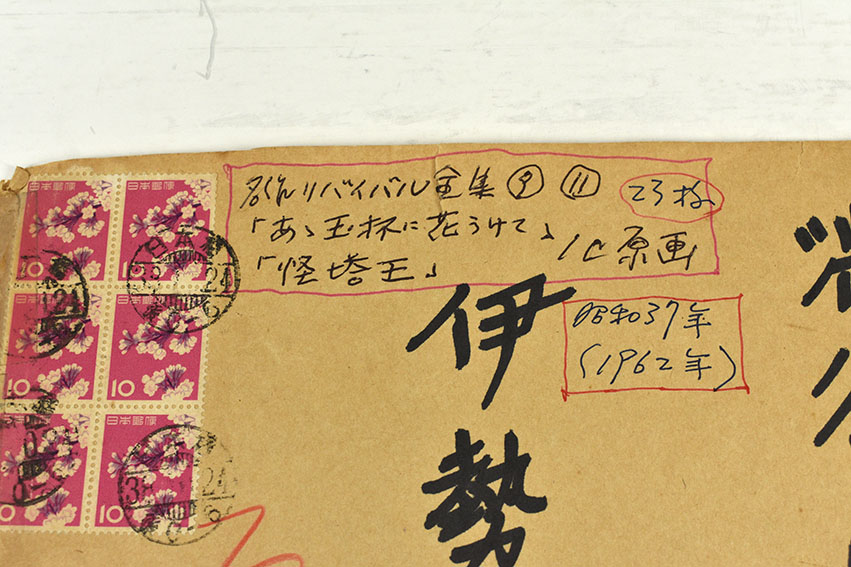 名作リバイバル全集⑨ ⑪ 23枚
「あゝ玉杯に花うけて」
「怪塔王」 1C 原画
昭和37年
(1962年)
伊勢
日本郵便 日本郵便
10 10
日本郵便 日本郵便
10 10
日本郵便 日本郵便
10 10